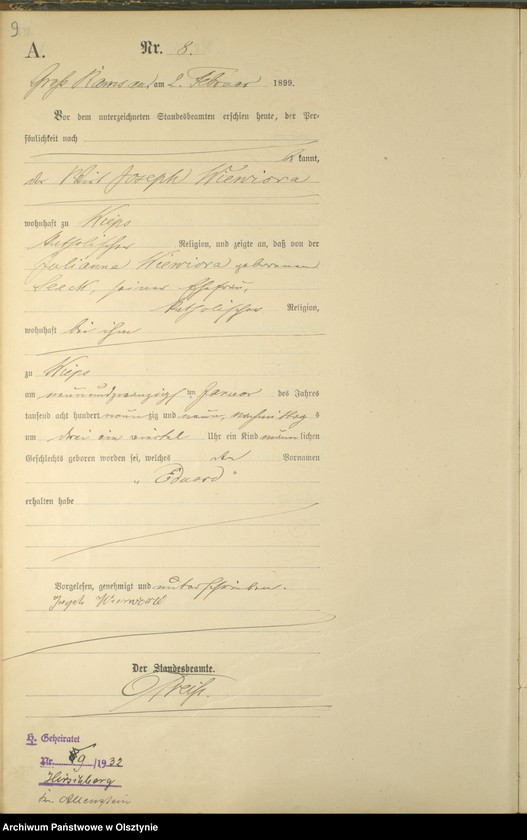 9
A.
Nr. 8.
Groß Ramsau am 2. Februar 1899.
Vor dem unterzeichneten Standesbeamten erschien heute, der Per-
sönlichkeit nach
bekannt,
der Wirt Joseph Wiewiora
wohnhaft zu Kieps
katholischer Religion, und zeigte an, daß von der
Julianna Wiewiora geborenen
Seeck, seiner Ehefrau,
katholischer Religion,
wohnhaft bei ihm
zu Kieps
am neunundzwanzigsten Januar des Jahres
tausend acht hundert neunzig und neun, nachmittags
um drei ein viertel Uhr ein Kind männlichen
Geschlechts geboren worden sei, welches den Vornamen
„Eduard“
erhalten habe
Vorgelesen, genehmigt und unterschrieben.
Joseph
Der Standesbeamte.
Preiß.
H. Geheiratet
Nr. 9/1932
Hirschberg
Kr. Allenstein
Archiwum Państwowe w Olsztynie